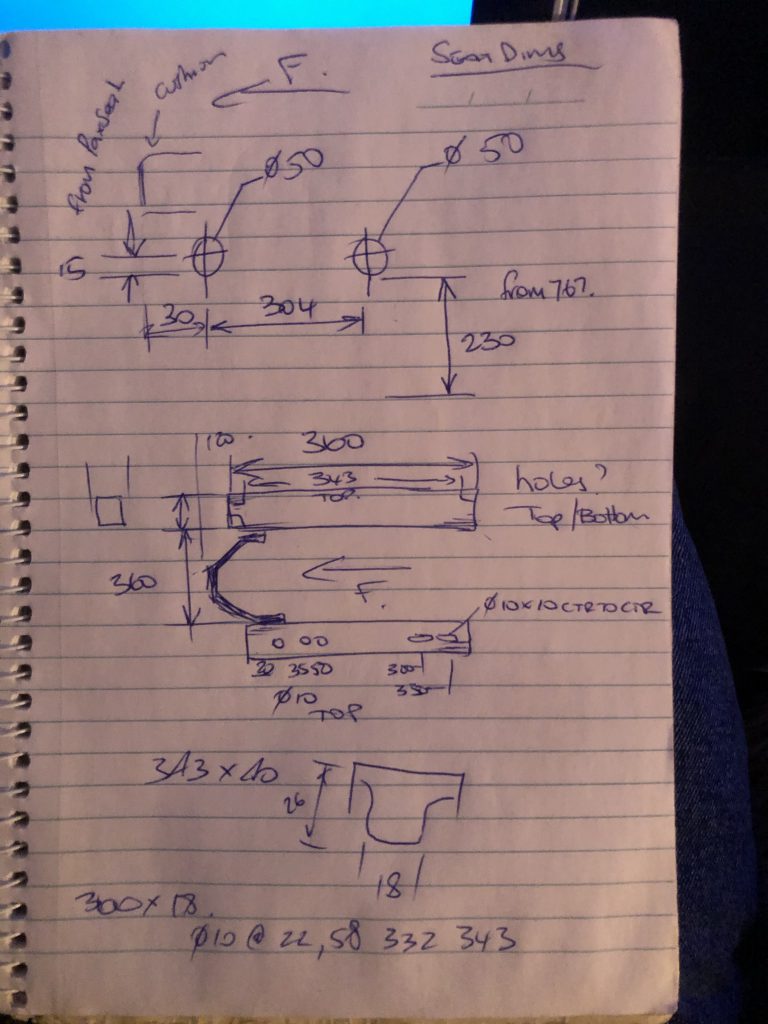 Seat Dims
F.
cushion
Ø50
Ø 50
15
30
304
from 767.
230
120.
360
343
TOP.
holes?
Top/Bottom
360
F.
Ø10X10CTRTOCTR
300
Ø10
TOP
343 × 40
26
18
300 × 18.
Ø10 @ 22, 58 332 343